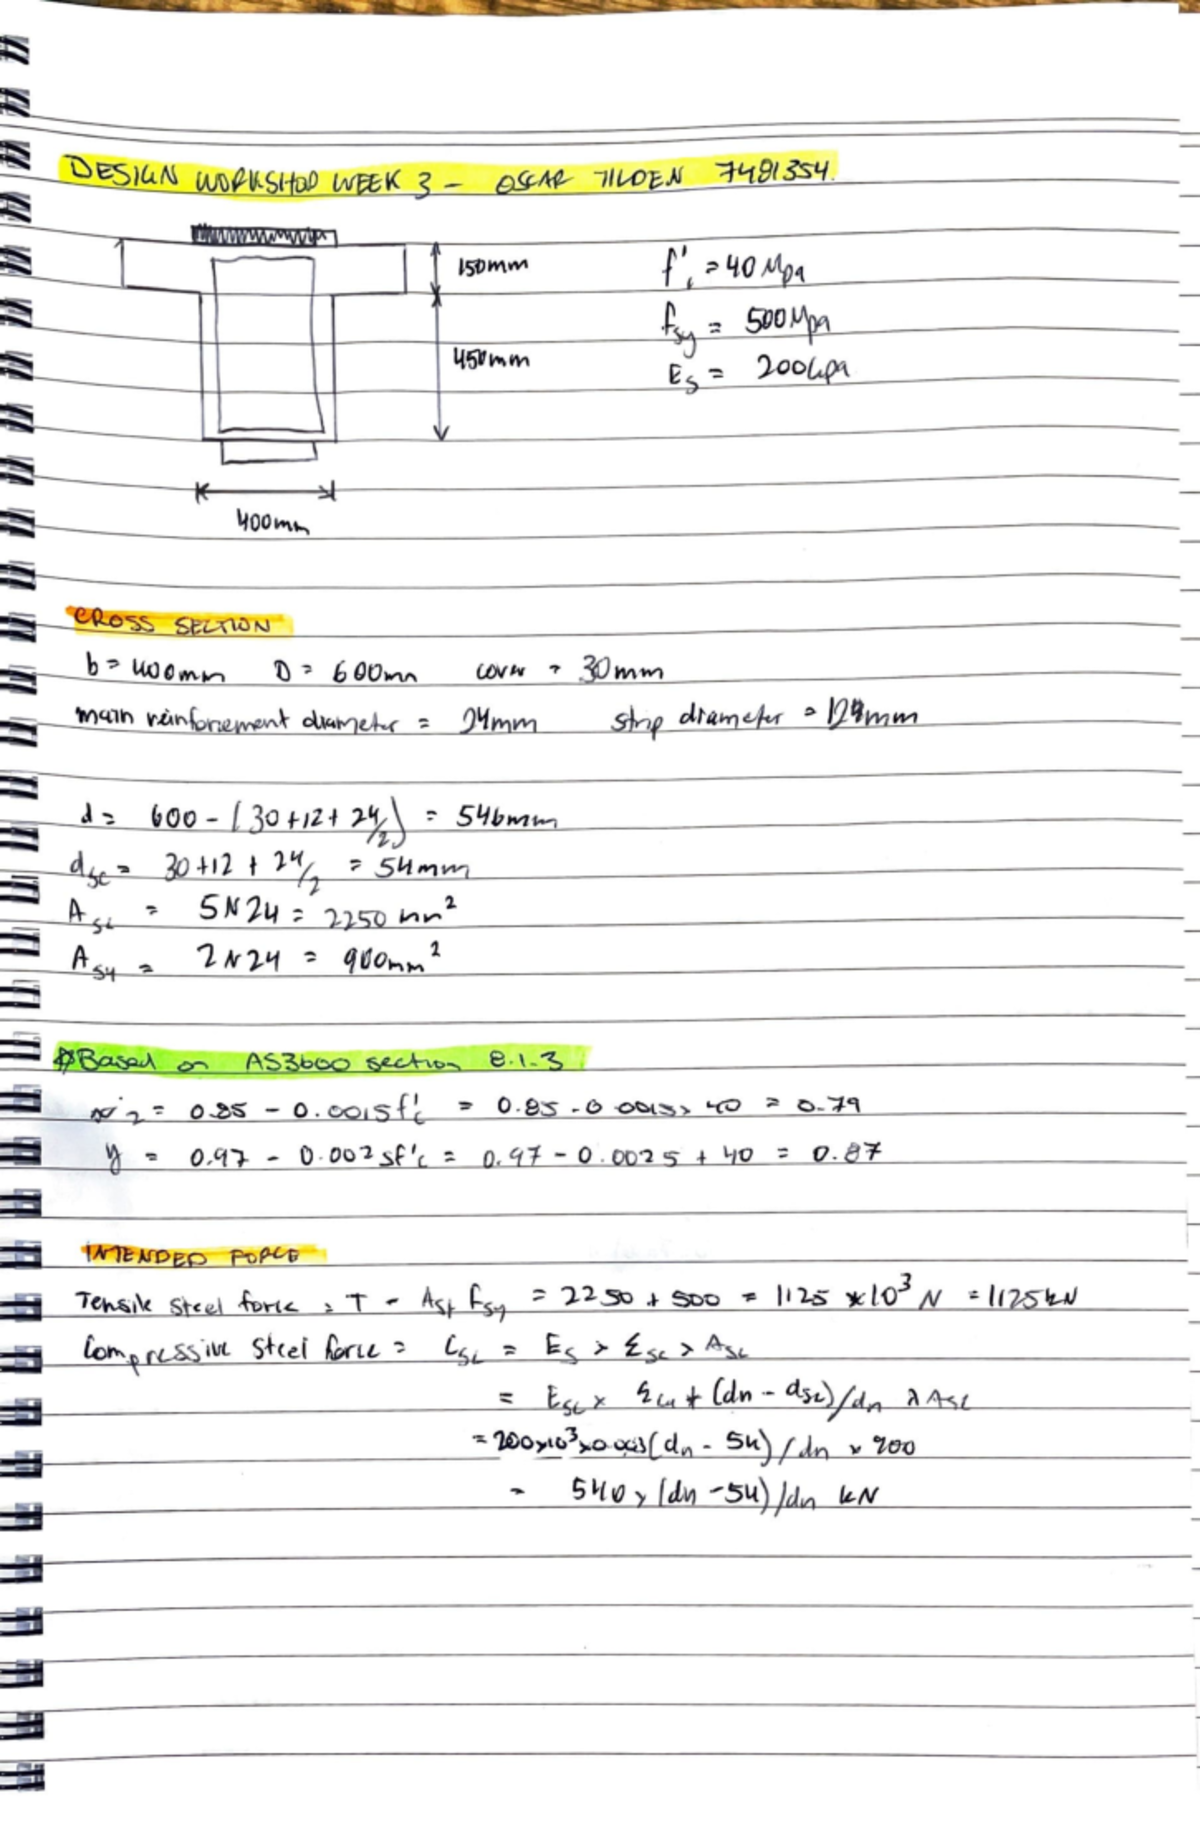 DESIGN WORKSHOP WEEK 3 - OSCAR TILDEN 7481354.
150mm
f'c = 40 Mpa
fsy = 500Mpa
450mm
Es = 200Gpa
400mm
CROSS SECTION
b = 400mm D = 600mm cover = 30mm
main reinforcement diameter = 24mm strip diameter = 12mm
d = 600 - (30+12+24/2) = 546mm
dsc = 30+12+24/2 = 54mm
Asc = 5N24 = 2250 mm²
Asy = 2N24 = 900mm²
Based on AS3600 section 8.1.3
α2 = 0.85 - 0.0015f'c = 0.85 - 0.0015 × 40 = 0.79
y = 0.97 - 0.0025f'c = 0.97 - 0.0025 + 40 = 0.87
INTENDED FORCE
Tensile steel force = T = Ast fsy = 2250 + 500 = 1125 ×10³ N = 1125kN
Compressive steel force = Csc = Es × Σsc × Asc
= Esc × Σcu + (dn - dsc)/dn × Asc
= 200×10³×0.003(dn - 54)/dn × 900
= 540 × (dn - 54)/dn kN